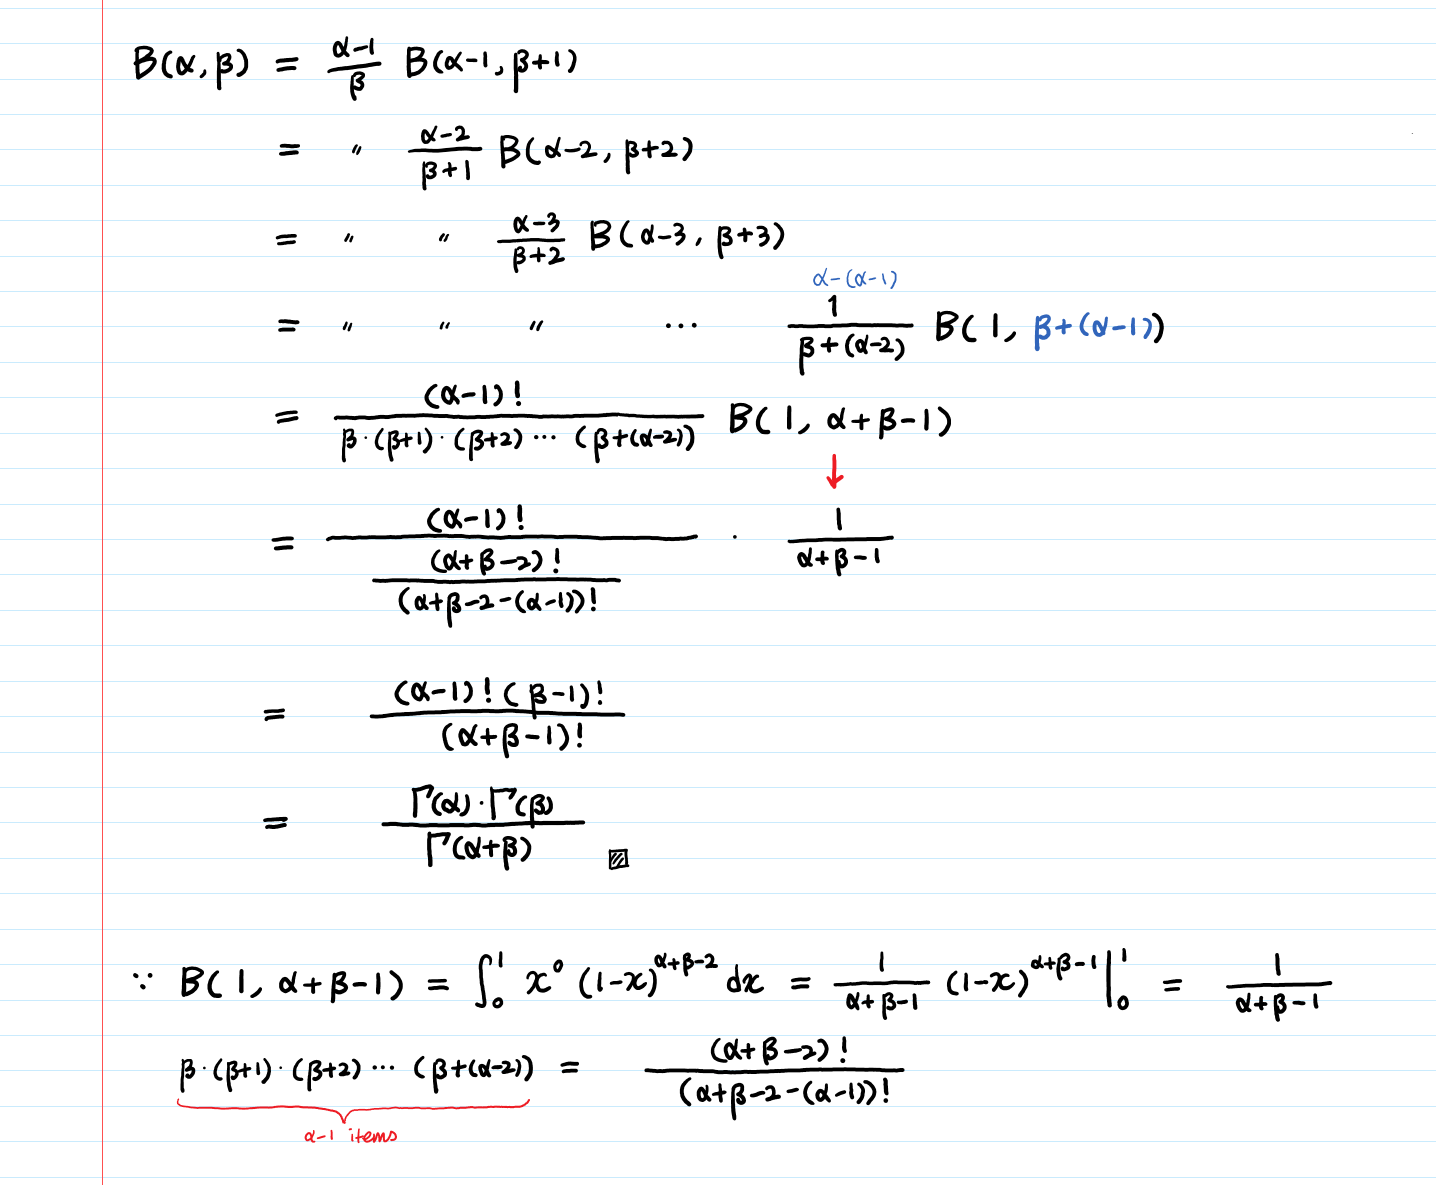 B(α, β) = \frac{α-1}{β} B(α-1, β+1)
= 〃 \frac{α-2}{β+1} B(α-2, β+2)
= 〃 〃 \frac{α-3}{β+2} B(α-3, β+3)
α-(α-1)
= 〃 〃 〃 ⋯ \frac{1}{β+(α-2)} B(1, β+(α-1))
= \frac{(α-1)!}{β·(β+1)·(β+2)⋯(β+(α-2))} B(1, α+β-1)
↓
= \frac{(α-1)!}{\frac{(α+β-2)!}{(α+β-2-(α-1))!}} · \frac{1}{α+β-1}
= \frac{(α-1)!(β-1)!}{(α+β-1)!}
= \frac{Γ(α)·Γ(β)}{Γ(α+β)} ▨
∵ B(1, α+β-1) = ∫_0^1 x^0 (1-x)^{α+β-2} dx = \frac{1}{α+β-1} (1-x)^{α+β-1} |_0^1 = \frac{1}{α+β-1}
β·(β+1)·(β+2)⋯(β+(α-2)) = \frac{(α+β-2)!}{(α+β-2-(α-1))!}
α-1 items